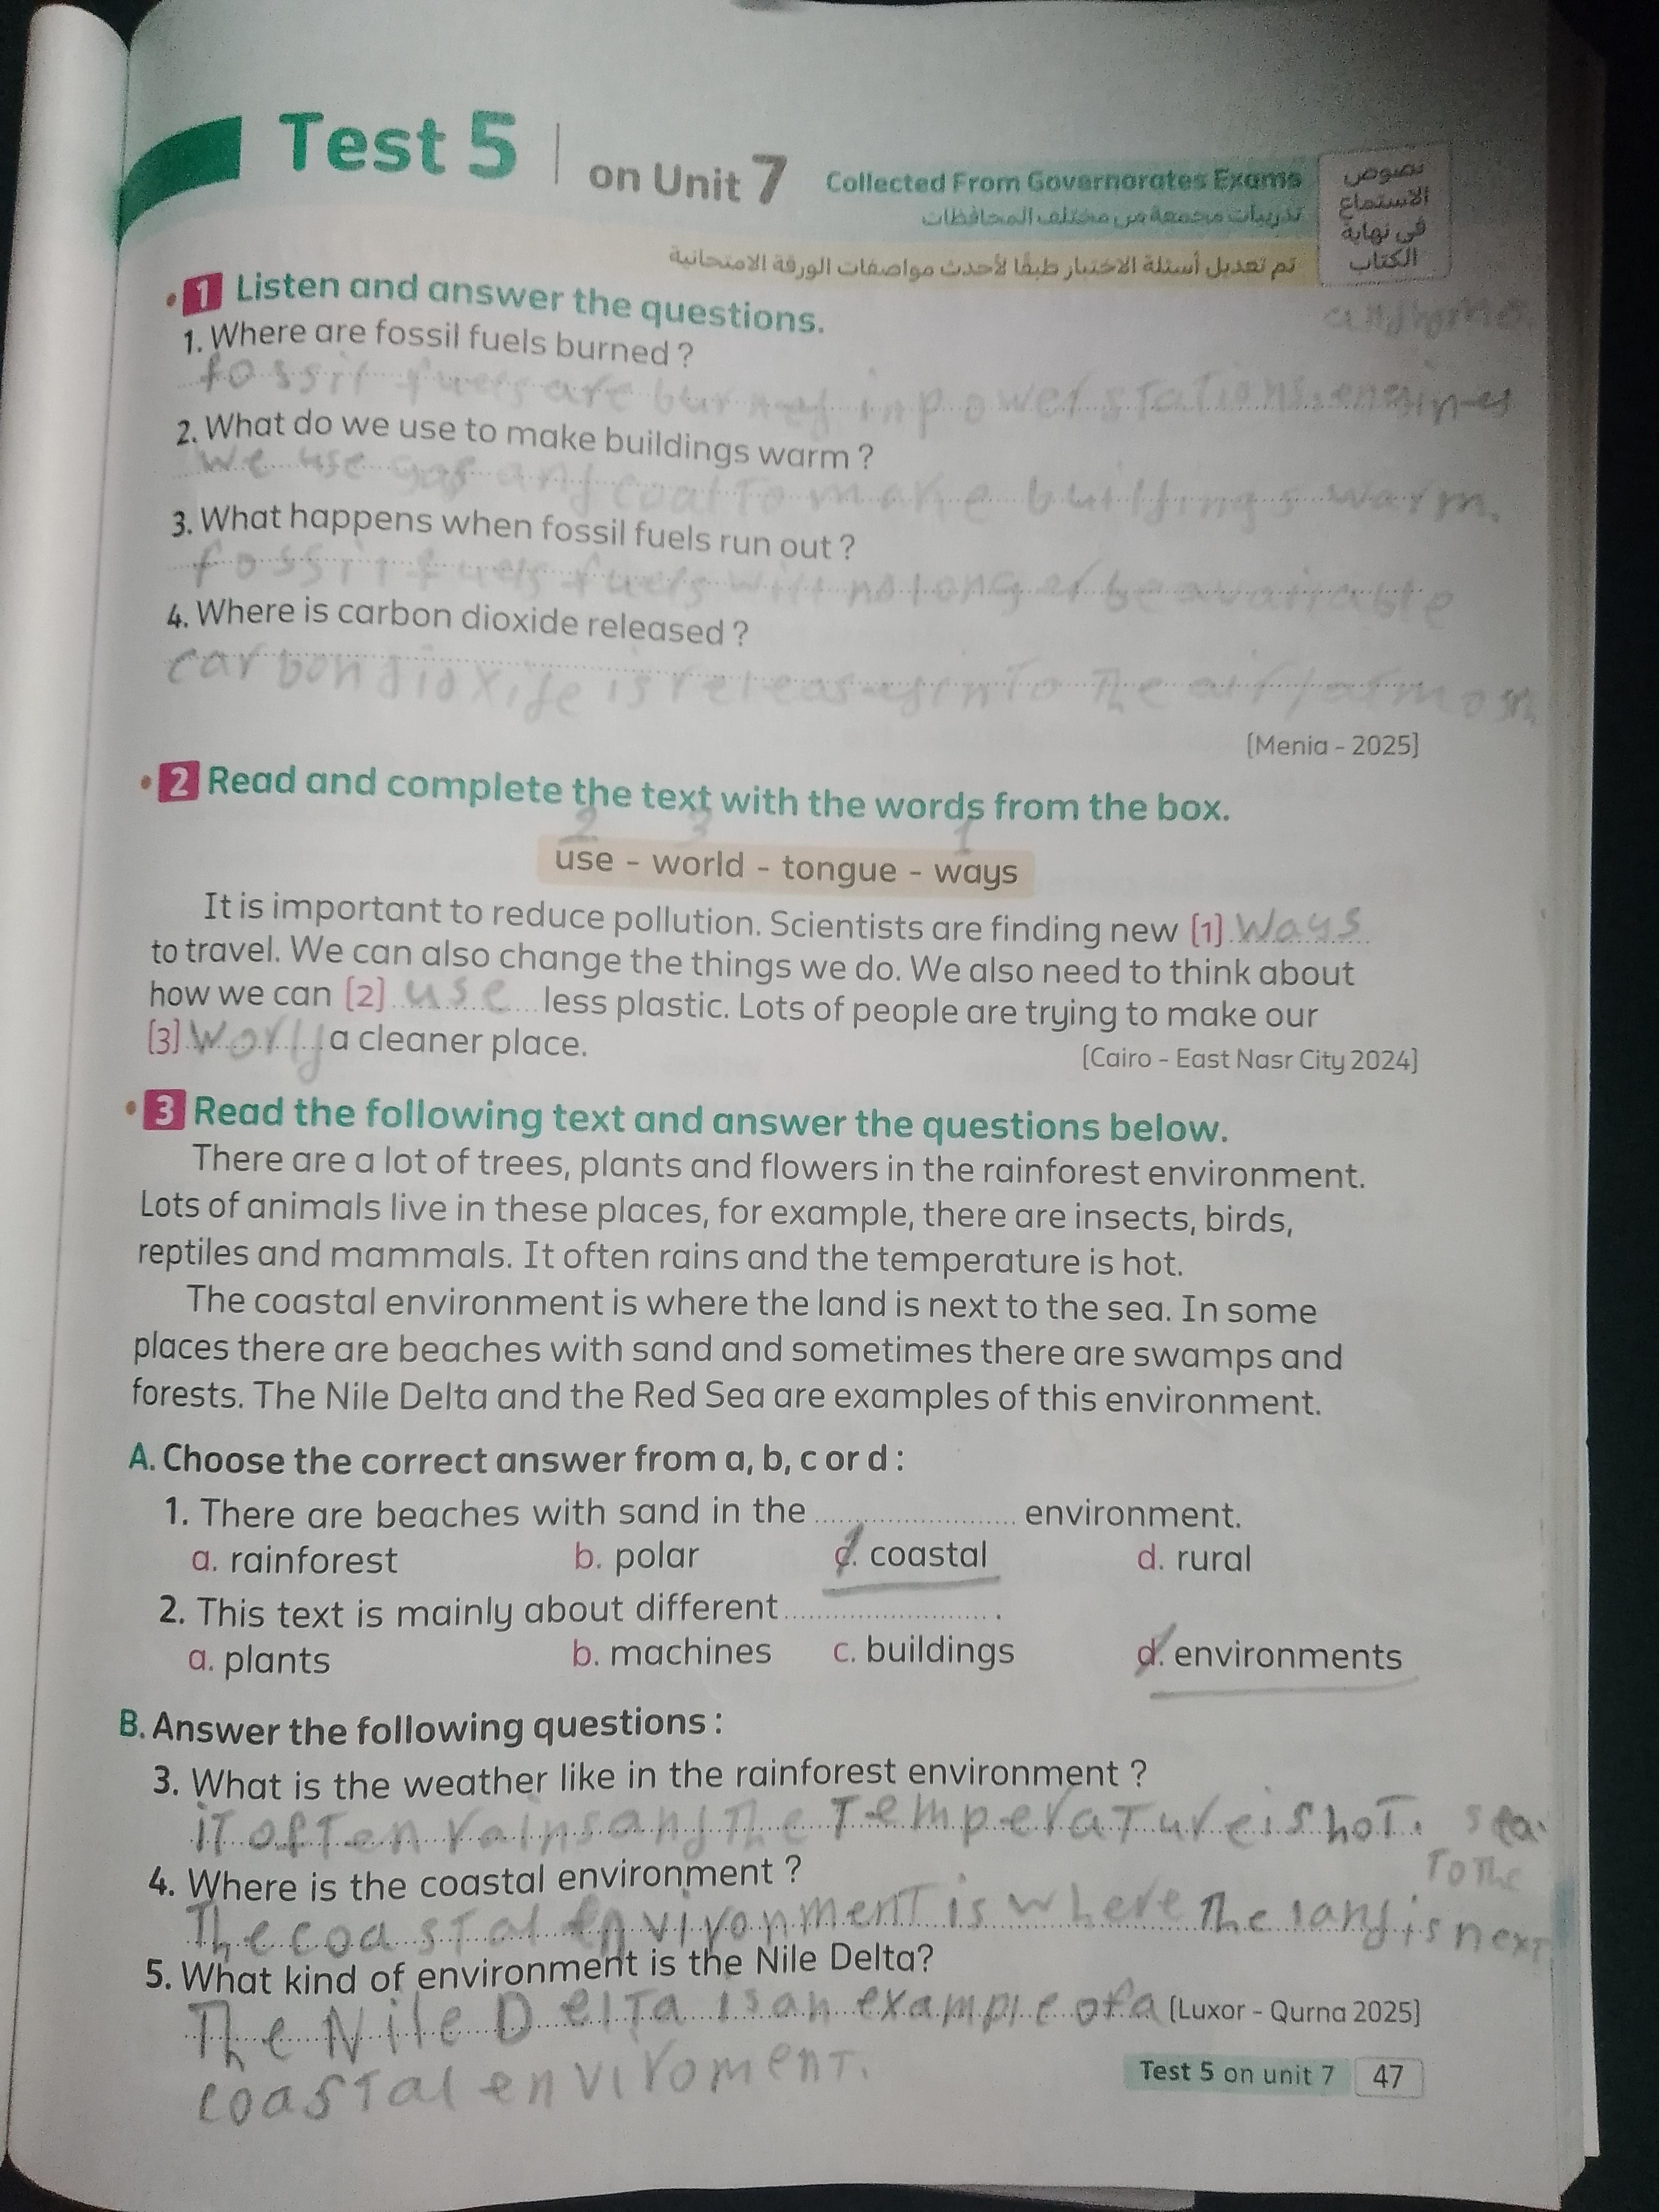 Test 5 on Unit 7 Collected From Governorates Exams
تدريبات مجمعة من مختلف المحافظات
تم تعديل أسئلة الاختبار طبقًا لأحدث مواصفات الورقة الامتحانية
نصوص
الاستماع
فى نهاية
الكتاب
1 Listen and answer the questions.
1. Where are fossil fuels burned ?
fossil fuels are burned in power stations, engines
2. What do we use to make buildings warm ?
We use gas and coal To make buildings warm.
3. What happens when fossil fuels run out ?
fossil fuels fuels will no longer be available
4. Where is carbon dioxide released ?
carbon dioxide is released into The air/
[Menia - 2025]
2 Read and complete the text with the words from the box.
2 3 1
use - world - tongue - ways
It is important to reduce pollution. Scientists are finding new [1] Ways
to travel. We can also change the things we do. We also need to think about
how we can [2] use less plastic. Lots of people are trying to make our
[3] World a cleaner place.
[Cairo - East Nasr City 2024]
3 Read the following text and answer the questions below.
There are a lot of trees, plants and flowers in the rainforest environment.
Lots of animals live in these places, for example, there are insects, birds,
reptiles and mammals. It often rains and the temperature is hot.
The coastal environment is where the land is next to the sea. In some
places there are beaches with sand and sometimes there are swamps and
forests. The Nile Delta and the Red Sea are examples of this environment.
A. Choose the correct answer from a, b, c or d :
1. There are beaches with sand in the ........................ environment.
a. rainforest b. polar c. coastal d. rural
2. This text is mainly about different ........................ .
a. plants b. machines c. buildings d. environments
B. Answer the following questions :
3. What is the weather like in the rainforest environment ?
iT ofTen rains and The TemperaTure is hoT.
4. Where is the coastal environment ?
The coasTal environmenT is where The land is nexT
To The
sea.
5. What kind of environment is the Nile Delta?
The Nile DelTa is an example of a
[Luxor - Qurna 2025]
coasTal enviromenT.
Test 5 on unit 7 47